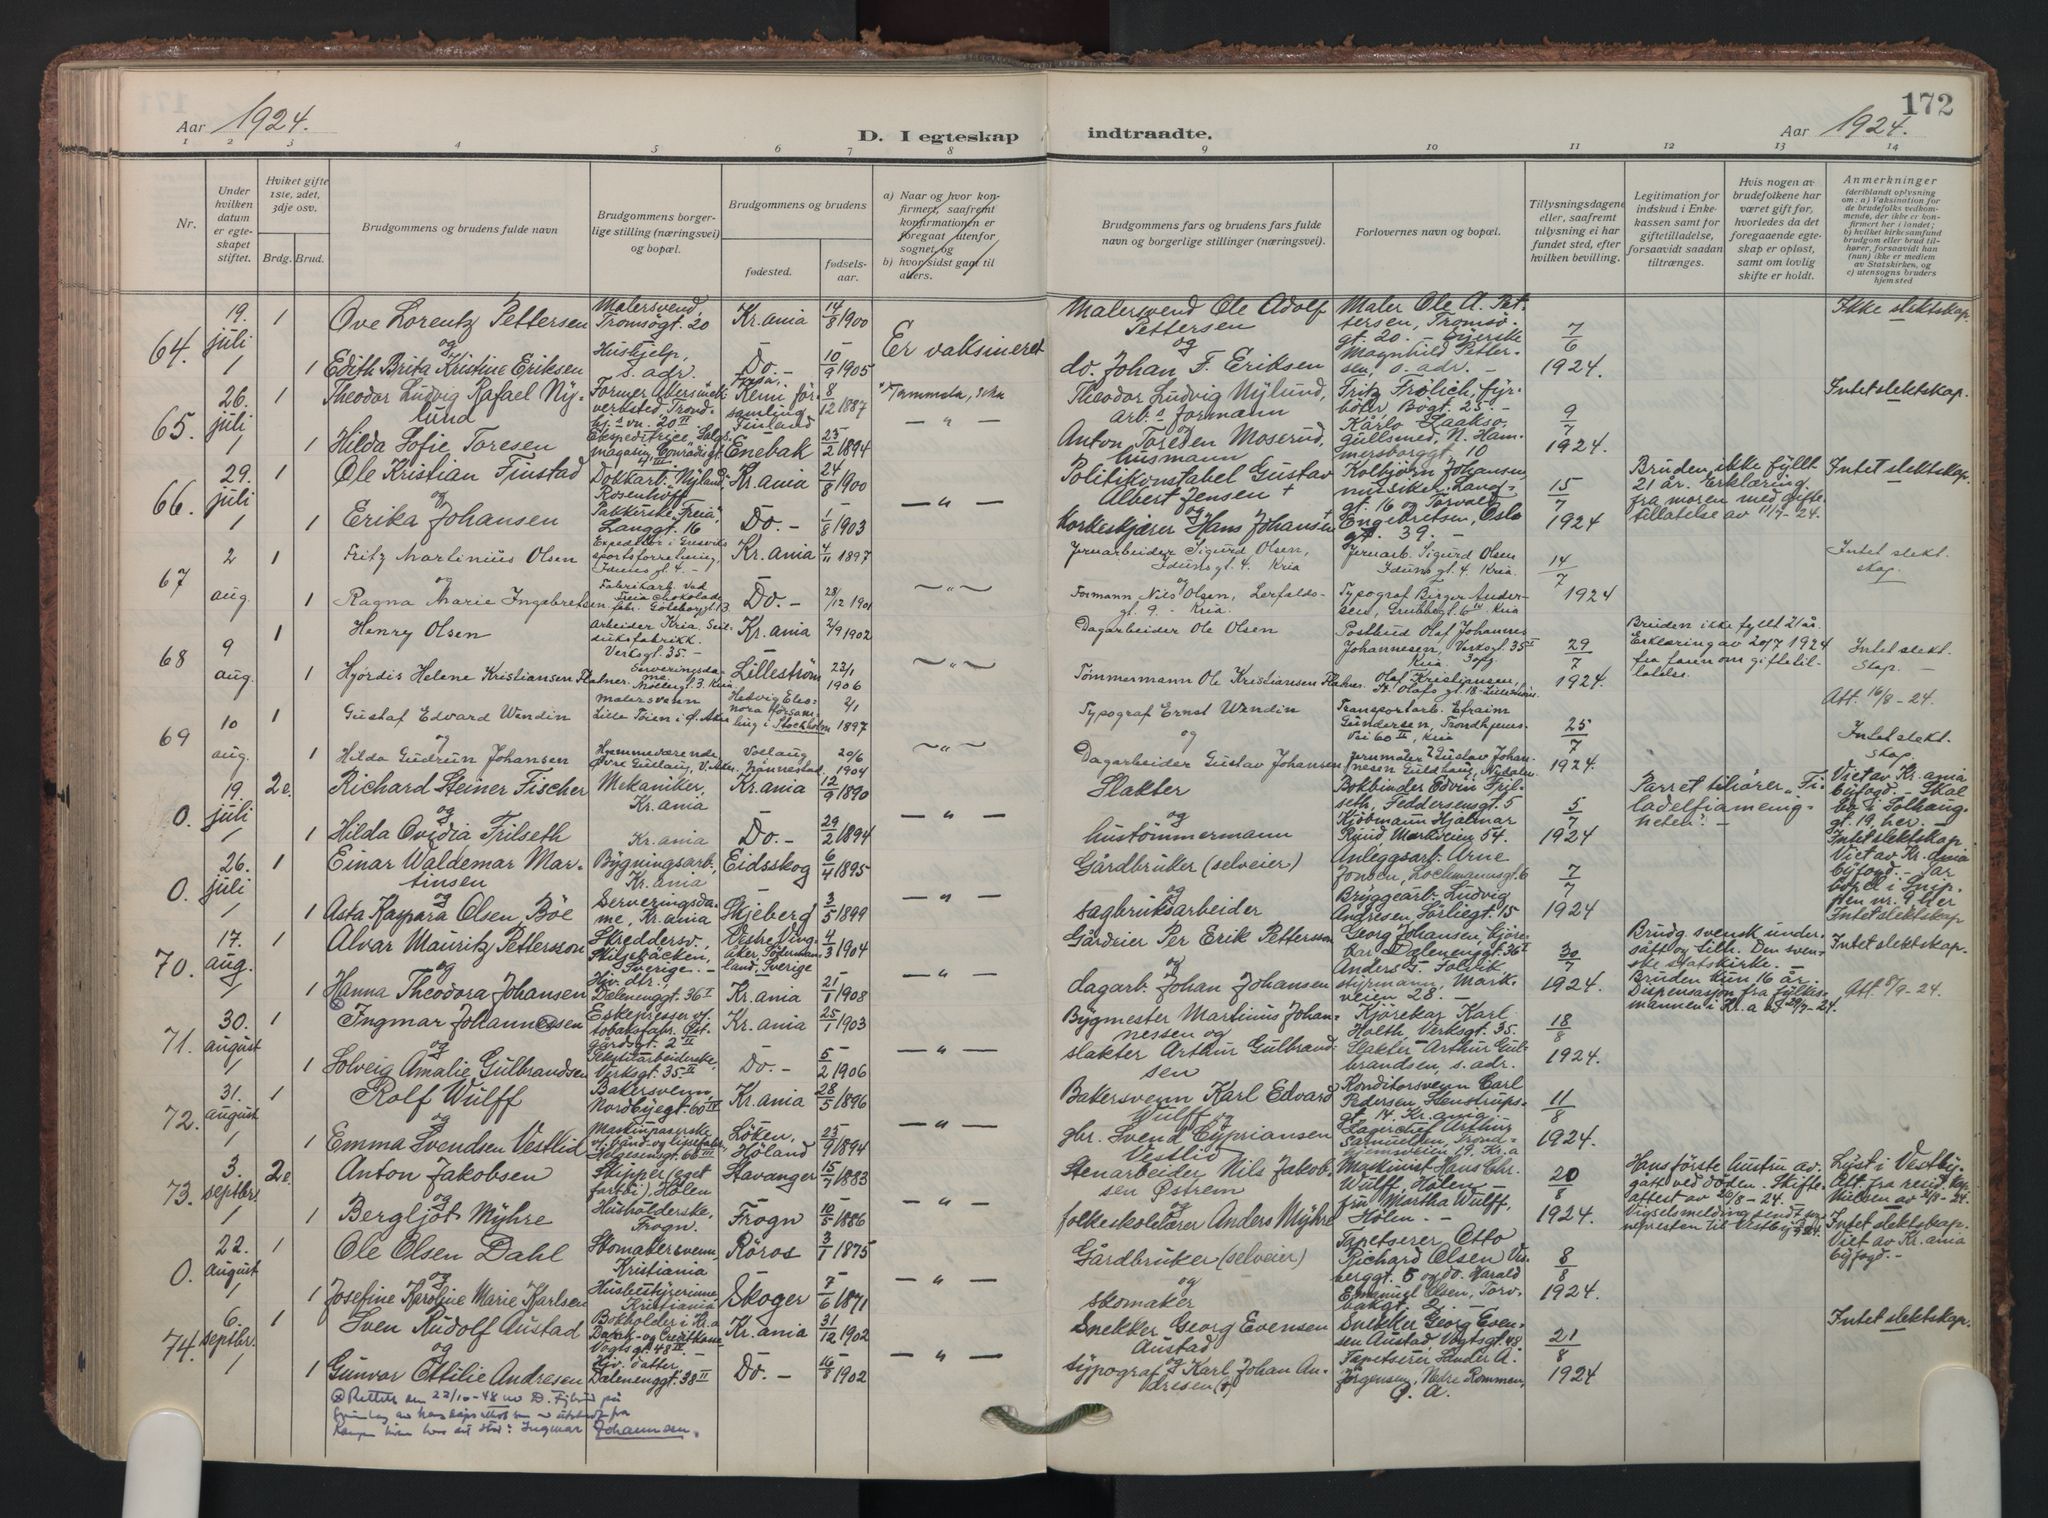 172
Aar 1924.
D. I egteskap indtraadte.
Aar 1924.
1 2 3 4 5 6 7 8 9 10 11 12 13 14
Nr.
Under hvilken datum er egteskapet stiftet.
Hviket gifte 1ste, 2det, 3dje osv.
Brdg. Brud.
Brudgommens og brudens fulde navn
Brudgommens borgerlige stilling (næringsvei) og bopæl.
Brudgommens og brudens
fødested.
fødselsaar.
a) Naar og hvor konfirmert, saafremt konfirmationen er foregaat utenfor sognet, og
b) hvor sidst gaat til alters.
Brudgommens fars og brudens fars fulde navn og borgerlige stillinger (næringsvei).
Forlovernes navn og bopæl.
Tillysningsdagene eller, saafremt tillysning ei har fundet sted, efter hvilken bevilling.
Legitimation for indskud i Enkekassen samt for giftetilladelse, forsaavidt saadan tiltrænges.
Hvis nogen av brudefolkene har været gift før, hvorledes da det foregaaende egteskap er opløst, samt om lovlig skifte er holdt.
Anmerkninger
(deriblandt oplysning om: a) Vaksination for de brudefolks vedkommende, der ikke er konfirmert her i landet; b) hvilket kirkesamfund brudgom eller brud tilhører, forsaavidt han (hun) ikke er medlem av Statskirken, og c) utensogns bruders hjemsted
64. 19. juli 1 Ove Lorentz Pettersen Malersvend, Tromsøgt. 20 Kr.ania 14/8 1900 Er vaksineret Malersvend Ole Adolf Pettersen Maler Ole A. Pettersen, Tromsøgt. 20. - 7/6 1924. Ikke slektskap.
og
1 Edith Brita Kristine Eriksen Hushjelp, s. adr. Do. - 10/9 1905 do. Johan F. Eriksen Magnhild Pettersen, s. adr. -
65. 26. juli 1 Theodor Ludvig Rafael Nylund Kemi Finland 8/12 1887 - " - Theodor Ludvig Nylund, arb. formann Fritz Frølich, fyrbøter, Bogt. 25. - 9/7 1924. Intet slektskap.
1 Hilda Sofie Toresen Enebak 23/2 1894 Anton Toresen Moserud, husmann Karlo Laakso, gullsmed, N. Hammersborggt. 10
66. 29. juli 1 Ole Kristian Finstad Dokkarb. Nyland, Rosenhoff Kr.ania 24/8 1900 - " - Politikonstabel Gustav Albert Jensen + Kolbjørn Johansen, musiker, Langgt. 16 og Torvald 15/7 1924 Bruden ikke fyllt 21 år. Erklæring fra moren med giftetillatelse av 11/7-24. Intet slektskap.
og
1 Erika Johansen Pakkerske "Freia", Langgt. 16 Do. - 1/8 1903 Korkeskjærer Hans Johansen + Engebretsen, Oslogt. 39. -
67 2 aug. 1 Fritz Martinius Olsen Idunsgt. 4. - Kr.ania 4/11 1897 ~ " ~ Jernarbeider Sigurd Olsen, Idunsgt. 4. Kria Jernarb. Sigurd Olsen Idunsgt. 4. Kria. 14/7 1924 Intet slektskap.
og
1 Ragna Marie Ingebretsen Fabrikarb. ved Freia chokoladefabr. Göteborggt. 13 Do. - 28/12 1901 Formann Nils Olsen, Lerfaldsgt. 9. - Kria. Typograf Birger Andersen, Kria
68 9 aug. 1 Henry Olsen Arbeider Kria Seilduksfabrikk. Verksgt. 35. - Kr.ania 2/9 1902 ~ " ~ Dagarbeider Ole Olsen Postbud Olaf Johannes Johannesen, Verksgt. 35 Kria. 29/7 1924. Bruden ikke fyllt 21 år. Erklæring av 20/7 1924 fra faren om giftetillatelse. Intet slektskap.
1 Hjørdis Helene Kristiansen Flatner. Serveringsdame. Møllergt. 3. Kria Lillestrøm 23/1 1906 Tømmermann Ole Kristiansen Flatner. Olaf Kristiansen, St. Olafs gt. 18 Lillestrøm. Att. 16/8-24.
69 10 aug. 1 Gustaf Edvard Wendin Malersvenn Lille Tøien i Ø. Aker Hedvig Eleonora församling i Stockholm 2/1 1897 ~ " ~ Typograf Ernst Wendin Transportarb. Efraim Gundersen, Trondhjemsvei 60 II, Kria 25/7 1924. Intet slektskap.
og
1 Hilda Gudrun Johansen Hjemmeværende, Øvre Gullaug, V. Aker. 20/6 1904 Dagarbeider Gustav Johansen Jernmaler Gustav Johannesen
0. 19 juli 2e. Richard Steiner Fischer Mekaniker, Kr.ania Kr.ania 12/9 1890 - " - Slakter Bokbinder Edvin Trilseth, Feddersensgt. 5 5/7 1924 Parret tilhører "Filadelfiamenigheten". - Viet av Kr.ania Byfogd. - Skal bo i Solhauggt. 19, her. - Intet slektskap
og
1 Hilda Ovidia Trilseth Kr.ania Do. - 29/2 1894 hustømmermann Kjøbmann Hjalmar Ruud Markveien 54.
0. 26. juli 1 Einar Waldemar Martinsen Bygningsarb, Kr.ania Eidsskog 6/4 1895 - " - Gårdbruker (selveier) Anleggsarb. Arne Jonsen, Lochmannsgt. 6 7/7 1924 Viet av Kr.ania byfogd. - Intet slektskap
og
1 Asta Kaspara Olsen Bøe Serveringsdame, Kr.ania Skjeberg 3/5 1899 sagbruksarbeider Bryggearb. Ludvig Andresen, Sørliegt. 15
70. 17. aug. 1 Alvar Mauritz Pettersson Skreddersv., Sverige. - Vestre Vingåker, Södermanland. Sverige 4/3 1904 - " - Gårdeier Per Erik Pettersson Georg Johansen, Dælenenggt. 36 II 30/7 1924. Brudg svensk undersått og tilh. Den svenske statskirke. - Bruden kun 16 år. Dispensasjon fra fylkesmannen i Kr.a av 29/7-24. Intet slektskap.
og
1 Hanna Theodora Johansen Hjv. dtr., Dælenenggt. 36 I Kr.ania 21/1 1908 dagarb. Johan Johansen Anders G. Folvik styrmann, Markveien 28. - Att. 8/9-24.
71. 30. august 1 ⊗ Ingmar Johannessen Kr.ania 25/1 1903 - " - Bygmester Martinius Johannessen og Kjørekar Karl Holth Verksgt. 35. 18/8 1924.
og
1 Solveig Amalie Gulbrandsen Verksgt. 35 II Do. - 5/2 1906 slakter Arthur Gulbrandsen Slakter Arthur Gulbrandsen, s. adr.
72. 31. august 1 Rolf Wulff Bakersvenn Nordbygt. 60 IV Kr.ania 28/5 1896 - " - Bakersvenn Karl Edvard Wulff og Konditorsvenn Carl Pedersen Stenstrupsgt. 14. Kr.ania. 11/8 1924.
og
1 Emma Svendsen Vestlid Løken, Høland 23/9 1894 gbr. Svend Cypriansen Vestlid Lagerchef Arthur Samuelsen, Trondhjemsveien 19. Kr.a
73. 3. septbr. 2e. Anton Jakobsen Skipper (eget fartøi), Hølen Stavanger 15/7 1883 - " - Stenarbeider Nils Jakobsen Østrem Maskinist Hans Chr. Wulff, Hølen - 20/8 1924. Hans første hustru avgått ved døden. Skifteattest av 26/8-24. Lyst i Vestby. Att. fra resid. kap. Nielsen av 21/8-24. Intet slektskap.
og
1 Bergljot Myhre Husholderske, Frogn. Frogn 10/5 1886 folkeskolelærer Anders Myhre fru Martha Wulff, Hølen. - -
0. 22. august 1 Ole Olsen Dahl Skomakersvenn, Kristiania Røros 3/1 1875 - " - Gårdbruker (selveier) Tapetserer Otto Richard Olsen 8/8 1924. Viet av Kr.ania byfogd. -
og
1 Josefine Karoline Marie Karlsen Husbestyrerinne, Kristiania Skoger 7/6 1871 skomaker Emanuel Olsen, Torvbakgt. 2. -
74. 6. septbr. 1 Sven Rudolf Austad Bokholder i Kr.a Bank- og Creditkasse Vogtsgt. 48 II. - Kr.ania 31/12 1902 - " - Snekker Georg Evensen Austad Snekker Georg Evensen Austad, Vogtsgt. 48 21/8 1924 Intet slektskap.
og
1 Gunvor Ottilie Andresen Hjv. datter, Dælenenggt. 38 II Do. - 16/8 1902 typograf Karl Johan Andresen (†) Tapetserer Sander A. Jørgensen, Nedre Rommen, Ø. A.
⊗ Rettet den 22/10-48
Ingmar Johannsen.